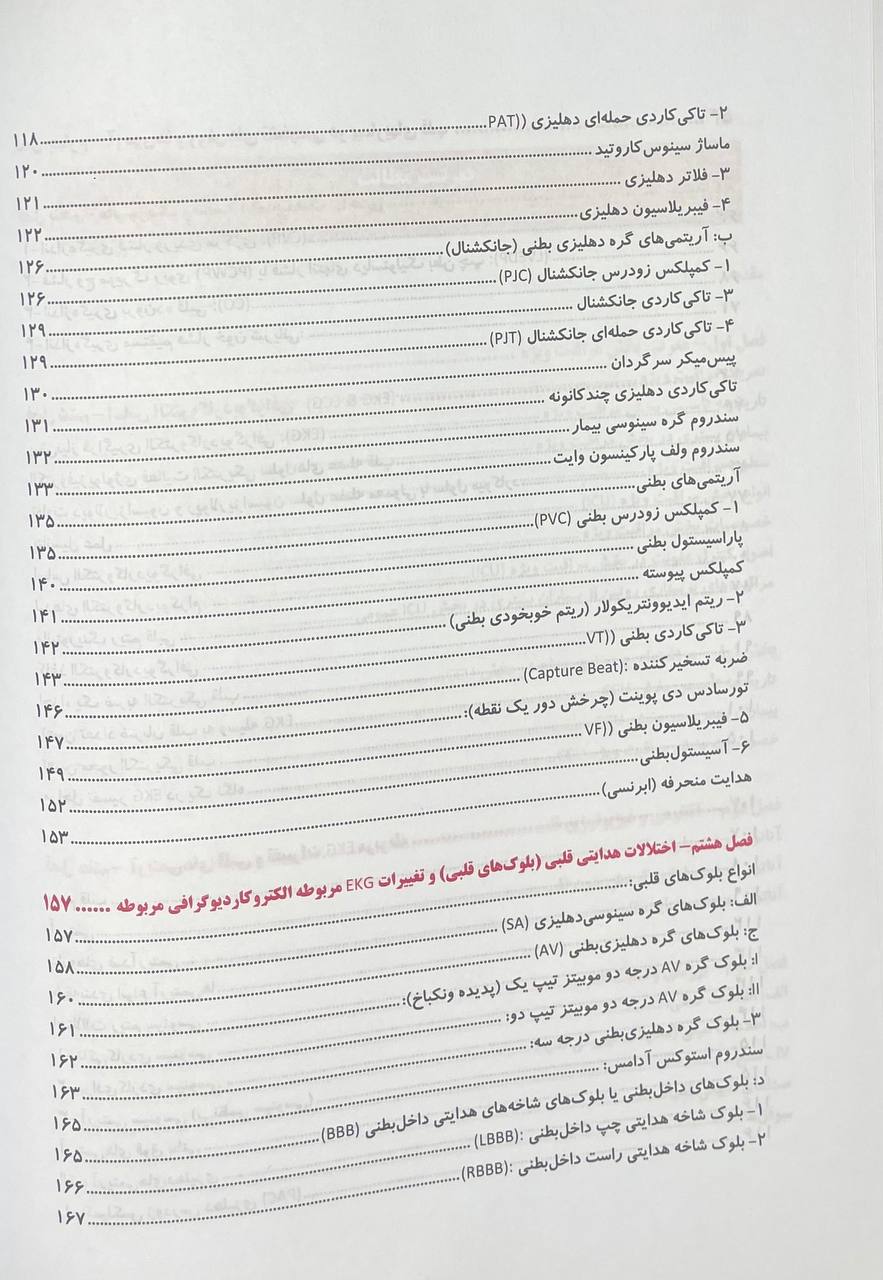 ۲- تاکی‌کاردی حمله‌ای دهلیزی ((PAT ۱۱۸
ماساژ سینوس کاروتید ۱۲۰
۳- فلاتر دهلیزی ۱۲۱
۴- فیبریلاسیون دهلیزی ۱۲۲
ب: آریتمی‌های گره دهلیزی بطنی (جانکشنال) ۱۲۶
۱- کمپلکس زودرس جانکشنال (PJC) ۱۲۶
۳- تاکی‌کاردی جانکشنال ۱۲۹
۴- تاکی‌کاردی حمله‌ای جانکشنال (PJT) ۱۲۹
پیس‌میکر سرگردان ۱۳۰
تاکی‌کاردی دهلیزی چندکانونه ۱۳۱
سندروم گره سینوسی بیمار ۱۳۲
سندروم ولف پارکینسون وایت ۱۳۳
آریتمی‌های بطنی ۱۳۵
۱- کمپلکس زودرس بطنی (PVC) ۱۳۵
پاراسیستول بطنی ۱۴۰
کمپلکس پیوسته ۱۴۱
۲- ریتم ایدیوونتریکولار (ریتم خوبخودی بطنی) ۱۴۲
۳- تاکی‌کاردی بطنی ((VT ۱۴۳
ضربه تسخیرکننده :(Capture Beat) ۱۴۶
تورسادس دی پوینت (چرخش دور یک نقطه): ۱۴۷
۵- فیبریلاسیون بطنی ((VF ۱۴۹
۶- آسیستول‌بطنی ۱۵۲
هدایت منحرفه (ابرنسی) ۱۵۳
فصل هشتم- اختلالات هدایتی قلبی (بلوک‌های قلبی) و تغییرات EKG مربوطه الکتروکاردیوگرافی مربوطه ...... ۱۵۷
انواع بلوک‌های قلبی: ۱۵۷
الف: بلوک‌های گره سینوسی‌دهلیزی (SA) ۱۵۸
ج: بلوک‌های گره دهلیزی‌بطنی (AV) ۱۶۰
I: بلوک گره AV درجه دو موبیتز تیپ یک (پدیده ونکباخ): ۱۶۱
II: بلوک گره AV درجه دو موبیتز تیپ دو: ۱۶۲
۳- بلوک گره دهلیزی‌بطنی درجه سه: ۱۶۳
سندروم استوکس آدامس: ۱۶۵
د: بلوک‌های داخل‌بطنی یا بلوک‌های شاخه‌های هدایتی داخل‌بطنی (BBB) ۱۶۵
۱- بلوک شاخه هدایتی چپ داخل‌بطنی :(LBBB) ۱۶۶
۲- بلوک شاخه هدایتی راست داخل‌بطنی :(RBBB) ۱۶۷